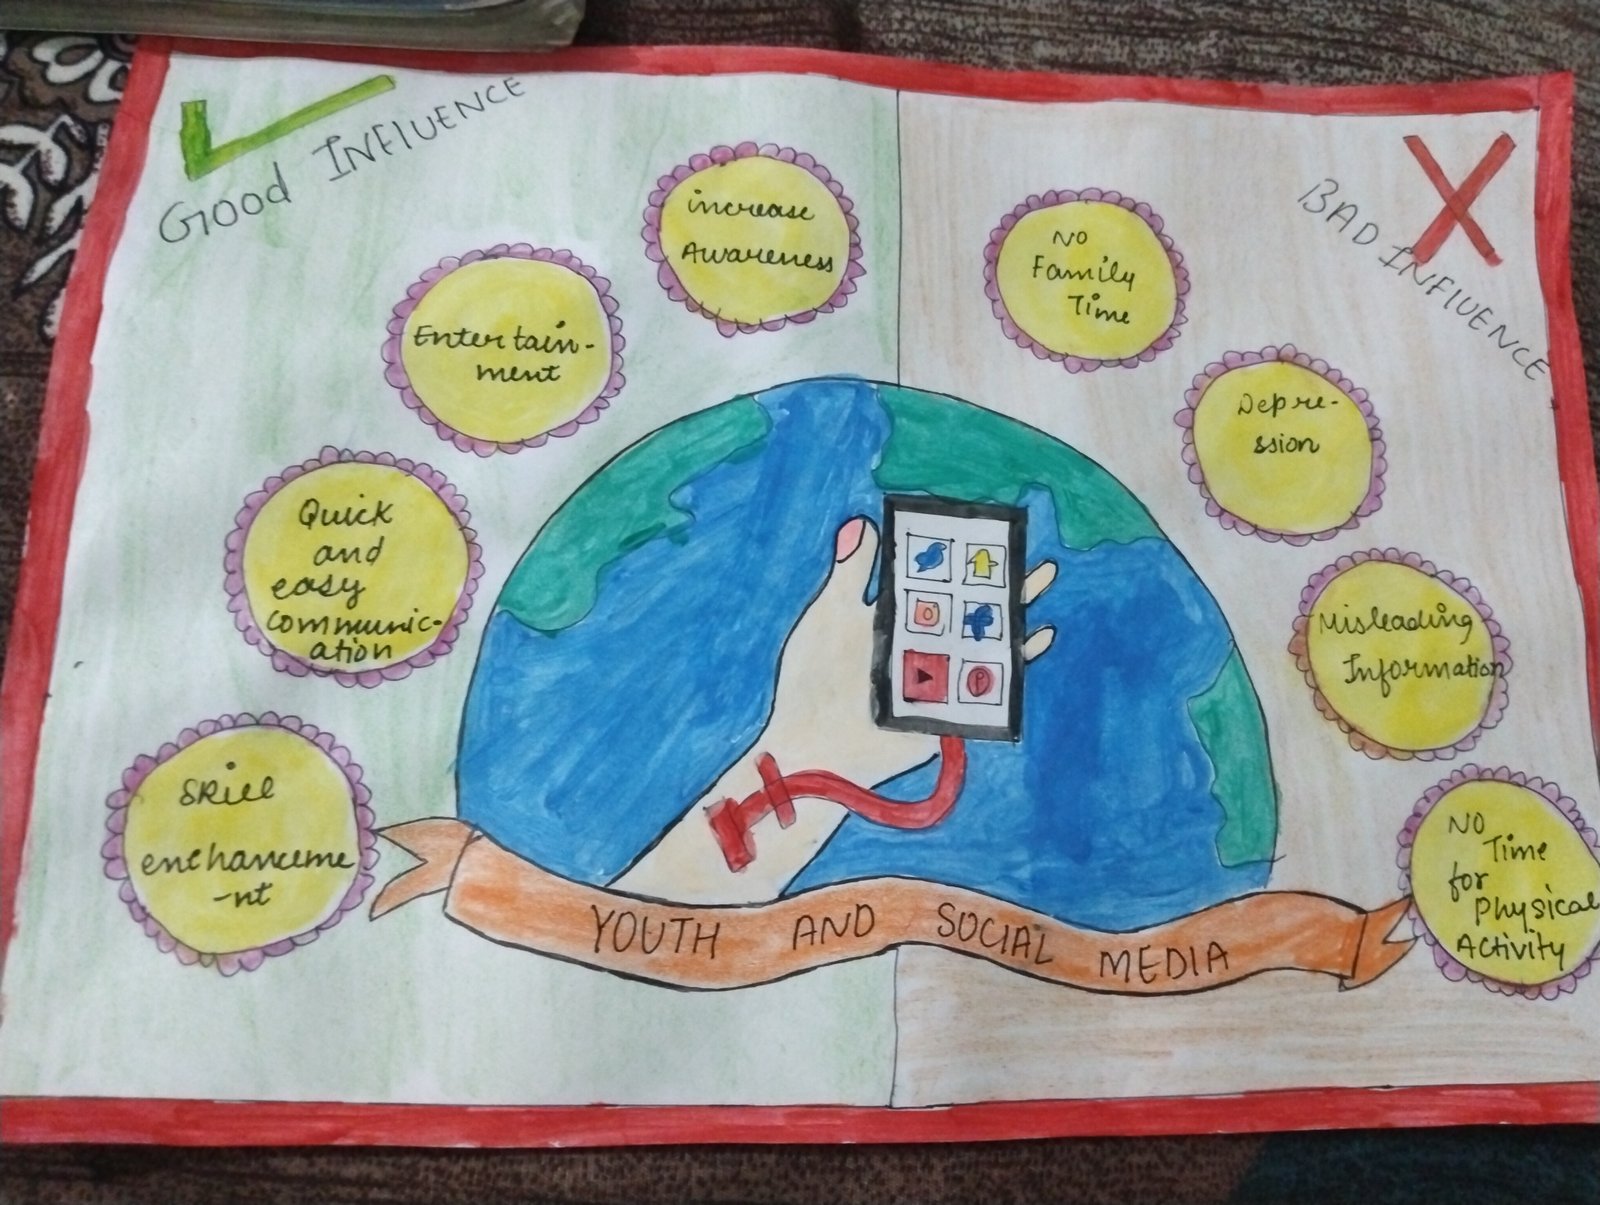 Good INFLUENCE
increase
Awareness
Entertain-
ment
Quick
and
easy
communic-
ation
skill
enchanceme
-nt
BAD INFLUENCE
NO
Family
Time
Depre-
ssion
Misleading
Information
NO
Time
for
Physical
Activity
P
YOUTH AND SOCIAL MEDIA